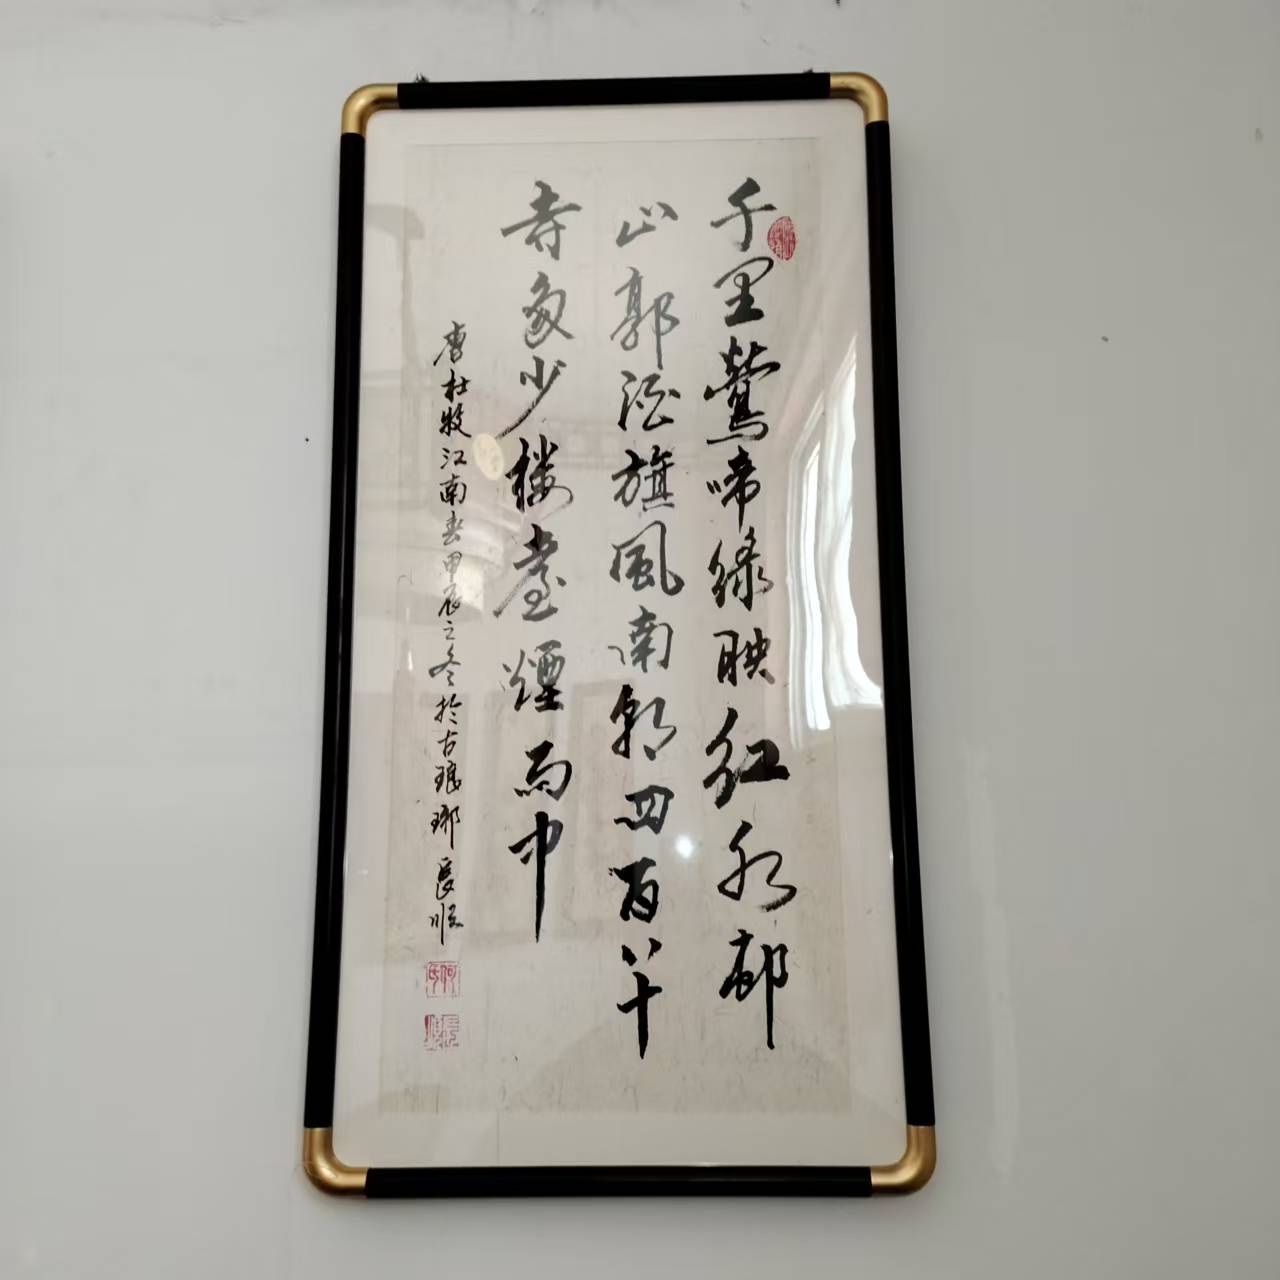 千里鶯啼綠映紅水邨
山郭酒旗風南朝四百八十
寺多少樓臺煙雨中
唐杜牧江南春甲辰之冬於古琅琊長順
何氏
長順